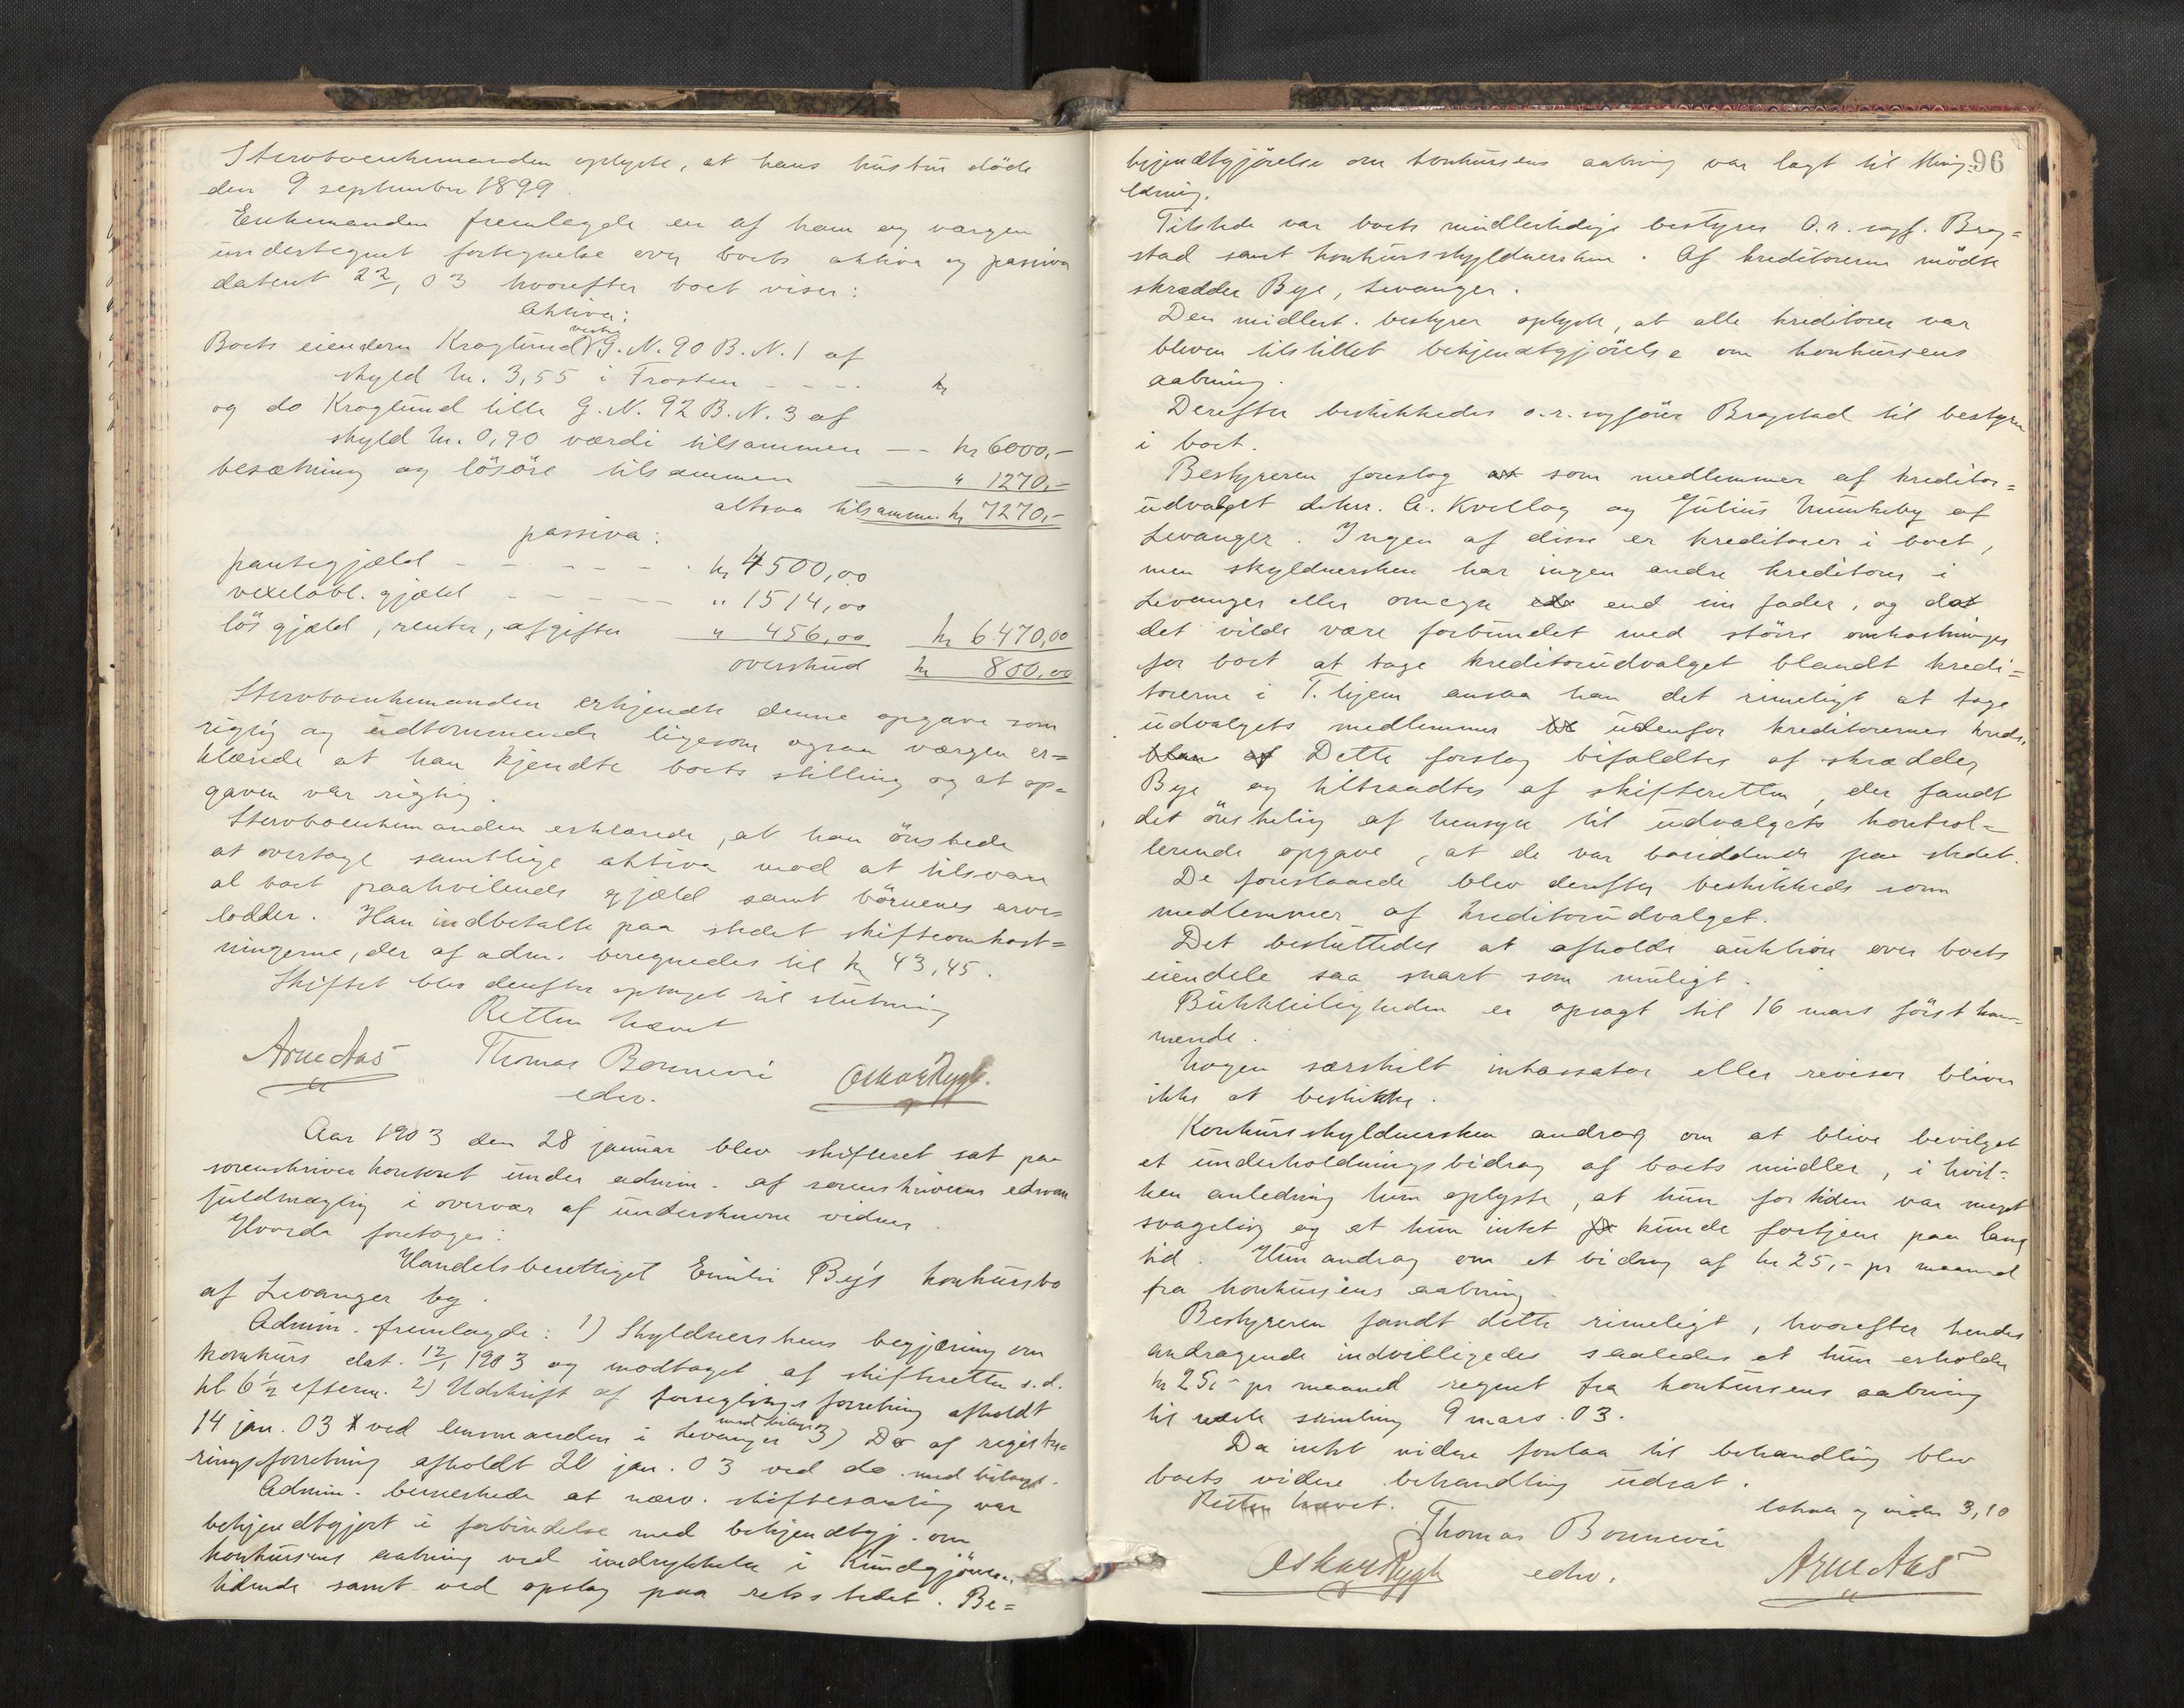 Stervboenkemanden oplyste, at hans hustru döde
den 9 september 1899.
Enkemanden fremlagde en af ham og vergen
undertegnet fortegnelse over boets aktiva og passiva
dateret 22/1 03 hvorefter boet viser:
Aktiva:
Boets eiendom Kroglund vestre G. N. 90 B. N. 1 af
skyld M. 3,55 i Frosten - - - - kr
og do Kroglund lille G. N. 92 B. N. 3 af
skyld M. 0,90 værdi tilsammen - - kr 6000,-
besætning og lösöre tilsammen " 1270,-
altsaa tilsammen kr 7270,-
passiva:
pantegjæld - - - - - - kr 4500,00
vexelobl. gjæld - - - - - " 1514,00
lös gjæld, renter, afgifter " 456,00 kr 6470,00
overskud kr 800,00
Stervboenkemanden erkjendte denne opgave som
rigtig og udtömmende ligesom ogsaa værgen er=
klærede at han kjendte boets stilling og at op=
gaven var rigtig.
Stervboenkemanden erklærede, at han önskede
at overtage samtlige aktiva mod at tilsvare
al boet paahvilende gjæld samt börnenes arve=
lodder. Han indbetalte paa stedet skifteomkost=
ningerne, der af adm. beregnedes til kr 43,45.
Skiftet blev derefter optaget til slutning
Retten hævet
Arne Aas Thomas Bonnevie Oskar Rygh.
edsv.
Aar 1903 den 28 januar blev skifteret sat paa
sorenskriverkontoret under admin. af sorenskriverens edsvorne
fuldmægtig i overvær af underskrevne vidner.
Hvorda foretoges:
Handelsberettiget Emilie Bye's konkursbo
af Levanger by.
Admin. fremlagde: 1) Skyldnerskens begjæring om
konkurs dat. 12/1 1903 og modtaget af skifteretten s.d.
kl. 6 1/2 efterm. 2) Udskrift af forseglingsforretning afholdt
14 jan. 03 ved lensmanden i Levanger med bilag 3) Do af registre=
ringsforretning afholdt 20 jan. 03 ved do. med bilag.
Admin. bemerkede at nærv. skiftesamling var
bekjendtgjort i forbindelse med bekjendtgj. om
konkursens aabning ved indrykkelse i Kundgjörelses=
tidende samt ved opslag paa retsstedet. Be=
96
kjendtgjörelse om konkursens aabning var lagt til thing=
læsning.
Tilstede var boets midlertidige bestyrer O.r.sagf. Brag=
stad samt konkursskyldnersken. Af kreditorerne mödte
skrædder Bye, Levanger.
Den midlert. bestyrer oplyste, at alle kreditorer var
bleven tilstillet bekjendtgjörelse om konkursens
aabning.
Derefter beskikkedes o.r.sagförer Bragstad til bestyrer
i boet.
Bestyreren foreslog at som medlemmer af kreditor=
udvalget dehrr. A. Kvellog og Julius Munkeby af
Levanger. Ingen af disse er kreditorer i boet,
men skyldnersken har ingen andre kreditorer i
Levanger eller omegn end sin fader, og da
det vilde være forbundet med större omkostninger
for boet at tage kreditorudvalget blandt kredi=
torerne i T.hjem ansaa han det rimeligt at tage
udvalgets medlemmer udenfor kreditorernes kreds.
Dette forslag bifaldtes af skrædder
Bye og tiltraadtes af skifteretten, der fandt
det önskelig af hensyn til udvalgets kontrol=
lerende opgave, at de var boesiddende paa stedet.
De foreslaaede blev derefter beskikkede som
medlemmer af kreditorudvalget.
Det besluttedes at afholde auktion over boets
eiendele saa snart som muligt.
Butikleiligheden er opsagt til 16 mars först kom=
mende.
Nogen særskilt inkassator eller revisor bliver
ikke at beskikke.
Konkursskyldnersken androg om at blive bevilget
et underholdningsbidrag af boets midler, i hvil=
ken anledning hun oplyste, at hun for tiden var meget
svagelig og at hun intet kunde fortjene paa lang
tid. Hun androg om et bidrag af kr 25,- pr maaned
fra konkursens aabning.
Bestyreren fandt dette rimeligt, hvorefter hendes
andragende indvilligedes saaledes at hun erholder
kr 25,- pr maaned regnet fra konkursens aabning
til næste samling 9 mars. 03.
Da intet videre forelaa til behandling blev
boets videre behandling udsat.
Retten hævet. lokale og vidner 3,10
Thomas Bonnevie
Oskar Rygh edsv. Arne Aas